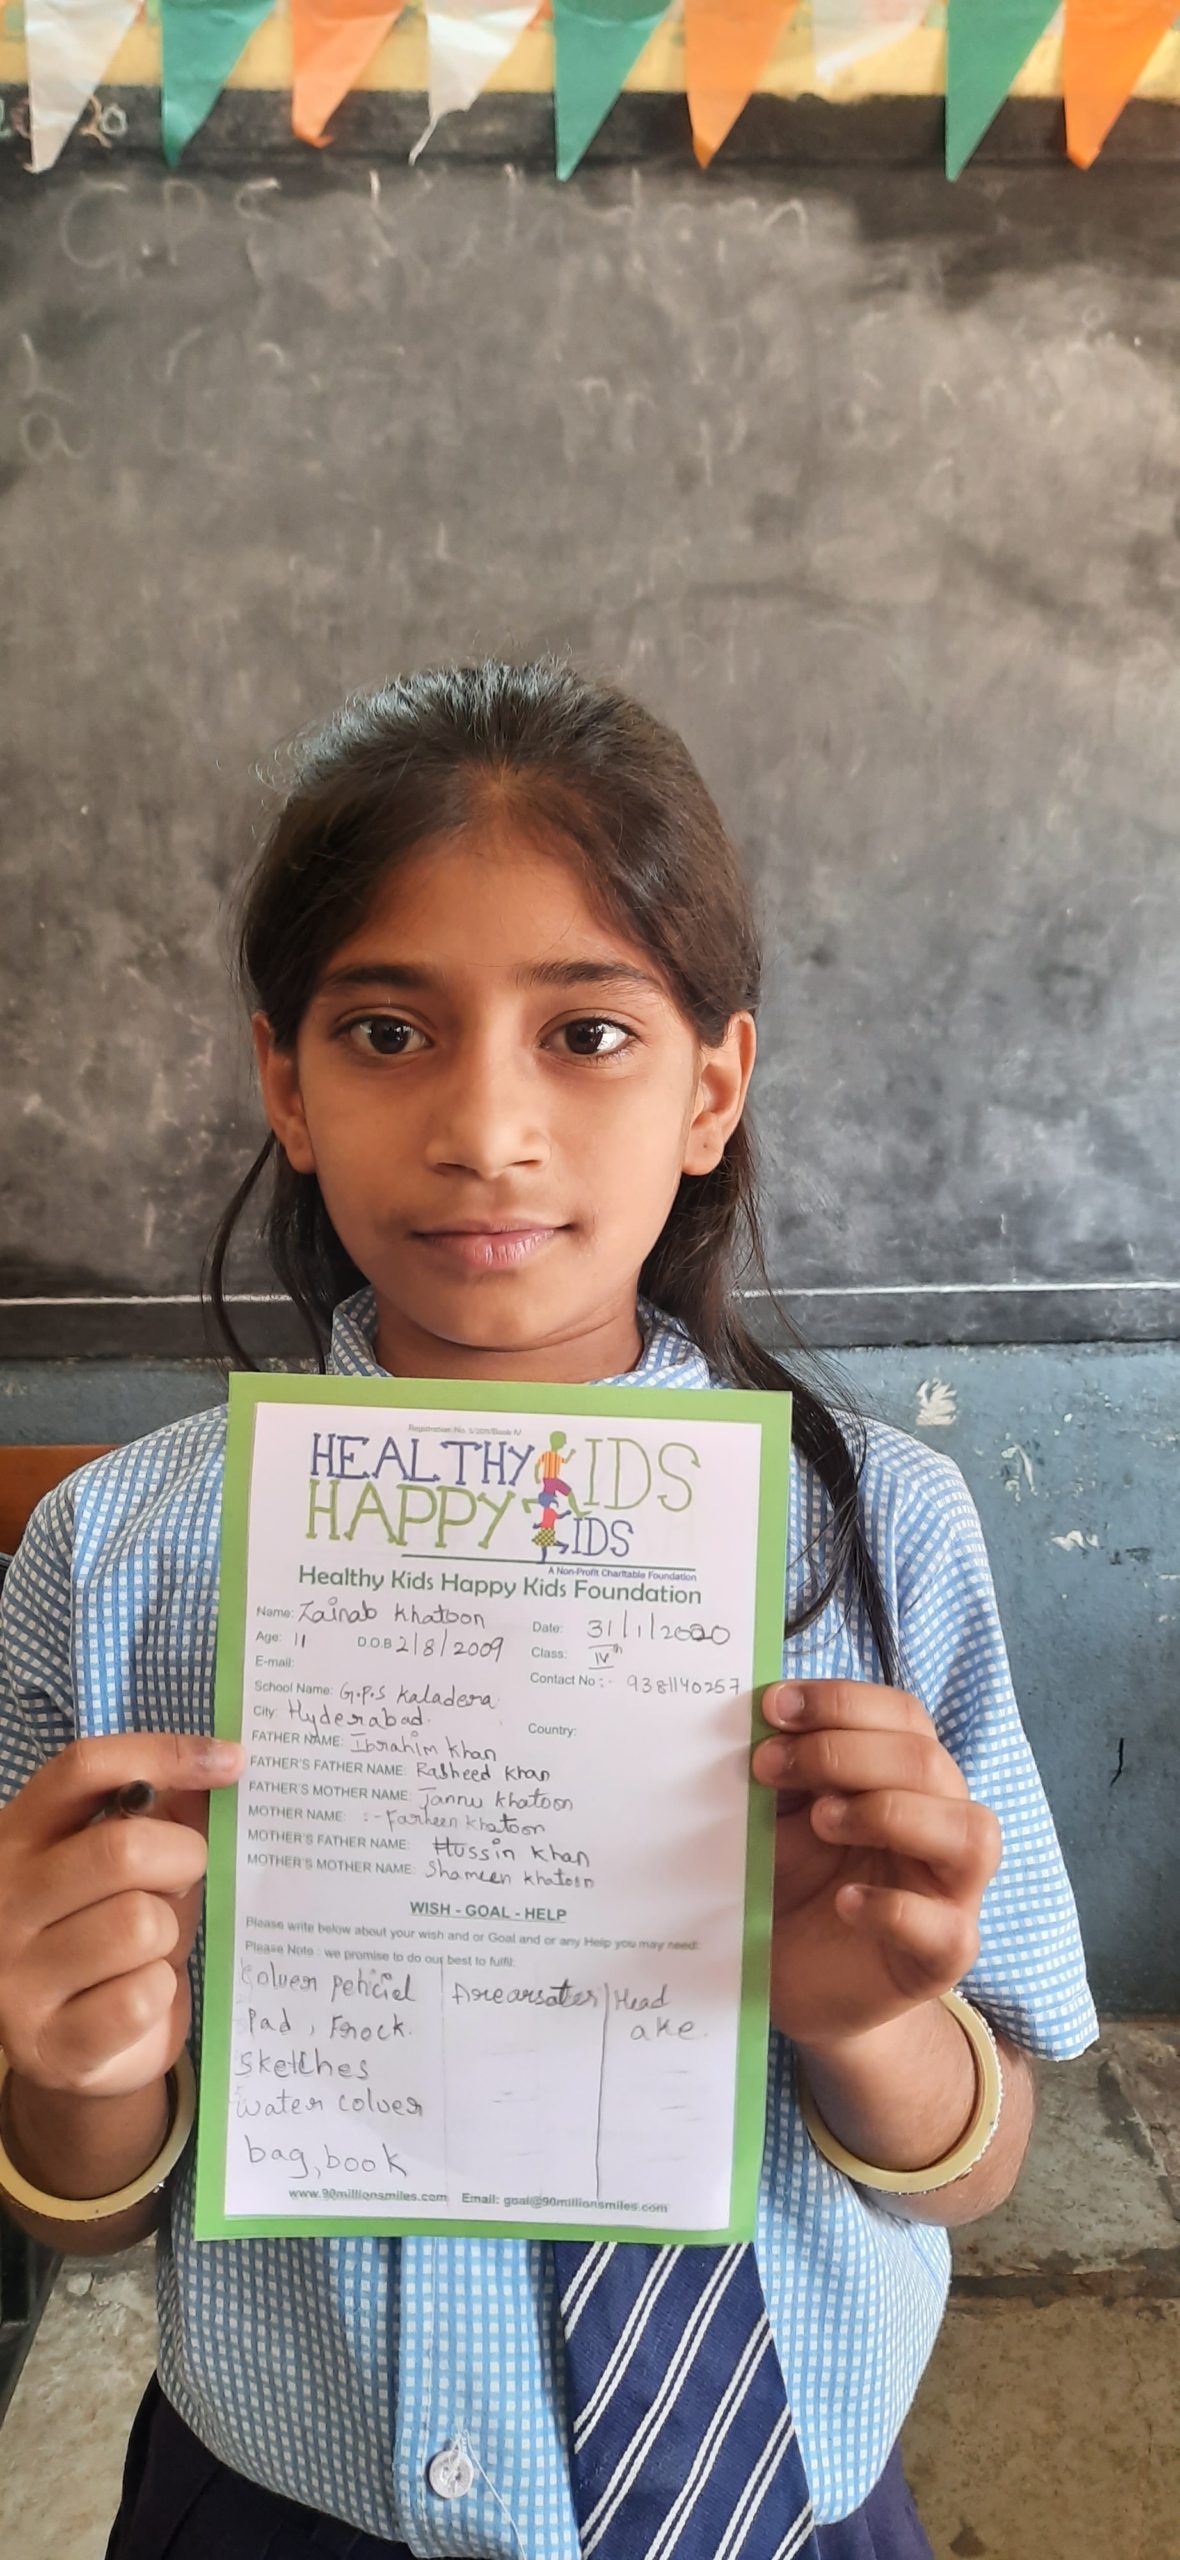 2020
G.P.S Kaladera
Registration No. 5/2011/Book IV
HEALTHY KIDS
HAPPY KIDS
A Non-Profit Charitable Foundation
Healthy Kids Happy Kids Foundation
Name: Zainab Khatoon Date: 31/1/2020
Age: 11 D.O.B 2/8/2009 Class: IVth
E-mail: Contact No :- 9381140257
School Name: G.P.S Kaladera
City: Hyderabad. Country:
FATHER NAME: Ibrahim Khan
FATHER'S FATHER NAME: Rasheed Khan
FATHER'S MOTHER NAME: Jannu Khatoon
MOTHER NAME: :- Farheen Khatoon
MOTHER'S FATHER NAME: Hussin Khan
MOTHER'S MOTHER NAME: Shameen Khatoon
WISH - GOAL - HELP
Please write below about your wish and or Goal and or any Help you may need:
Please Note : we promise to do our best to fulfil:
Coluer penciel Head
Pad, Frock. ake
Sketches
water coluer
bag, book
www.90millionsmiles.com Email: goal@90millionsmiles.com